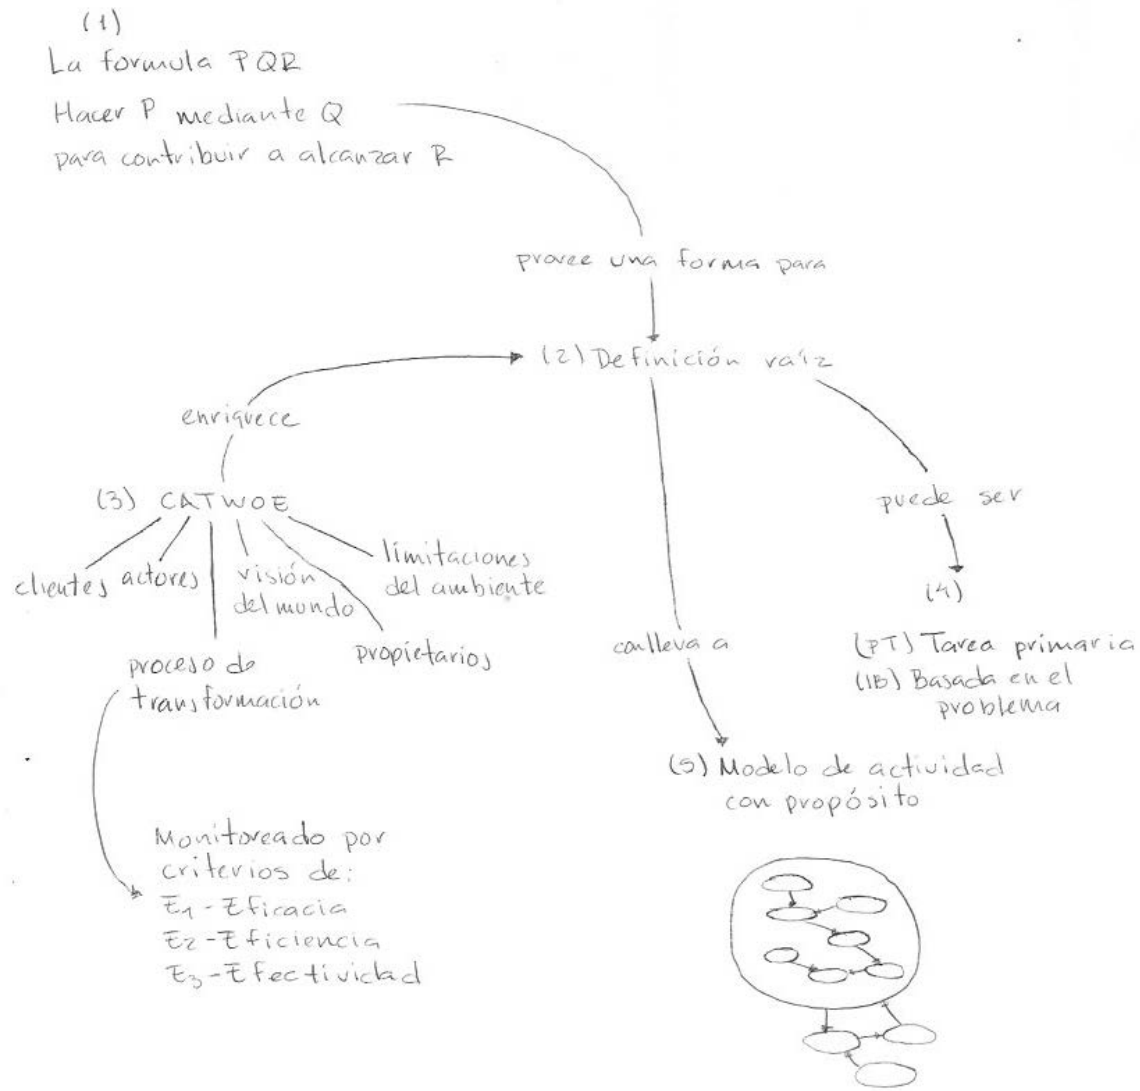 (1)
La formula PQR
Hacer P mediante Q
para contribuir a alcanzar R
provee una forma para
(2) Definición raíz
enriquece
(3) CATWOE
clientes
actores
visión
del mundo
limitaciones
del ambiente
proceso de
transformación
propietarios
puede ser
(4)
(PT) Tarea primaria
(IB) Basada en el
problema
conlleva a
(5) Modelo de actividad
con propósito
Monitoreado por
criterios de:
E1 - Eficacia
E2 - Eficiencia
E3 - Efectividad